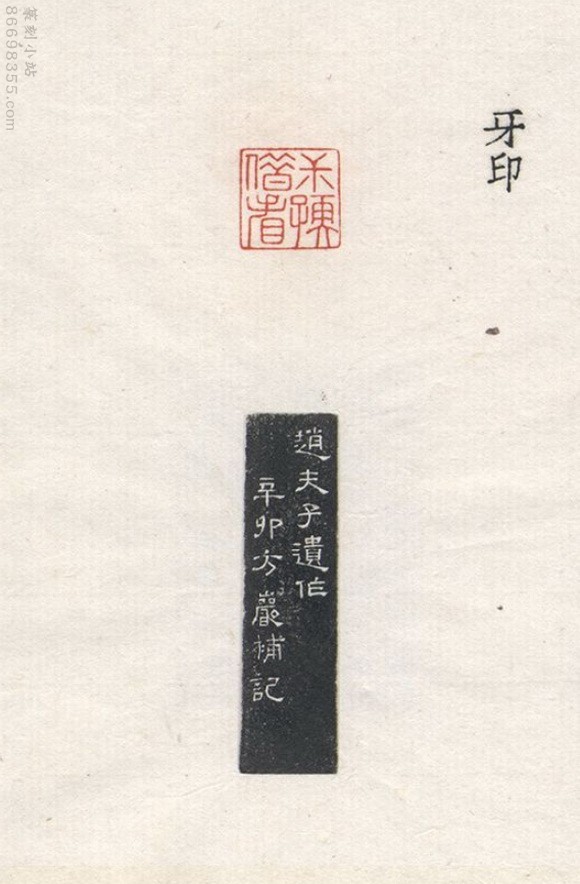 篆刻小站
86698355.com
牙印
趙夫子遺作
辛卯方巖補記